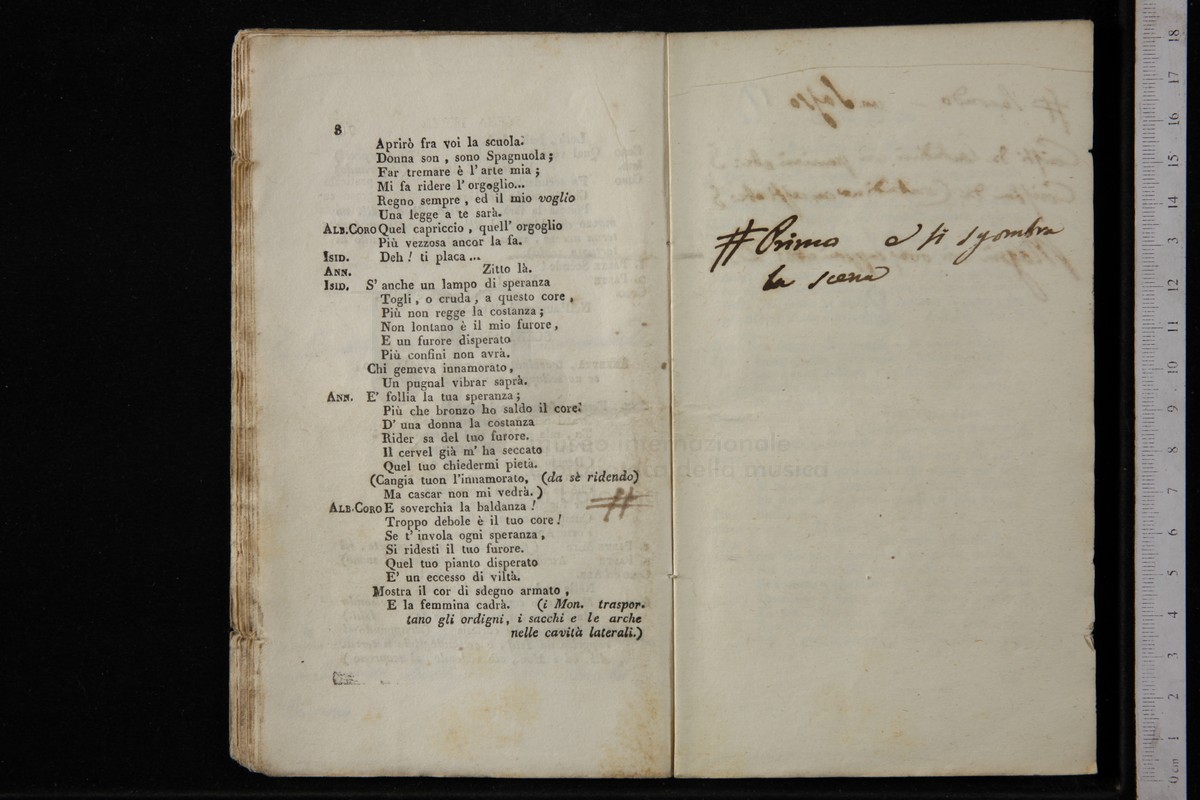 8
Aprirò fra voi la scuola.
Donna son , sono Spagnuola ;
Far tremare è l' arte mia ;
Mi fa ridere l' orgoglio...
Regno sempre , ed il mio voglio
Una legge a te sarà.
ALB.CORO Quel capriccio , quell' orgoglio
Più vezzosa ancor la fa.
ISID. Deh ! ti placa ...
ANN. Zitto là.
ISID. S' anche un lampo di speranza
Togli , o cruda , a questo core ,
Più non regge la costanza ;
Non lontano è il mio furore ,
E un furore disperato
Più confini non avrà.
Chi gemeva innamorato ,
Un pugnal vibrar saprà.
ANN. E' follia la tua speranza ;
Più che bronzo ho saldo il core.
D' una donna la costanza
Rider sa del tuo furore.
Il cervel già m' ha seccato
Quel tuo chiedermi pietà.
(Cangia tuon l'innamorato, (da sè ridendo)
Ma cascar non mi vedrà. )
ALB.CORO E soverchia la baldanza !
Troppo debole è il tuo core !
Se t' invola ogni speranza ,
Si ridesti il tuo furore.
Quel tuo pianto disperato
E' un eccesso di viltà.
Mostra il cor di sdegno armato ,
E la femmina cadrà. (i Mon. traspor-
tano gli ordigni, i sacchi e le arche
nelle cavità laterali.)
#
# Primo e si sgombra
la scena
museo internazionale
della musica